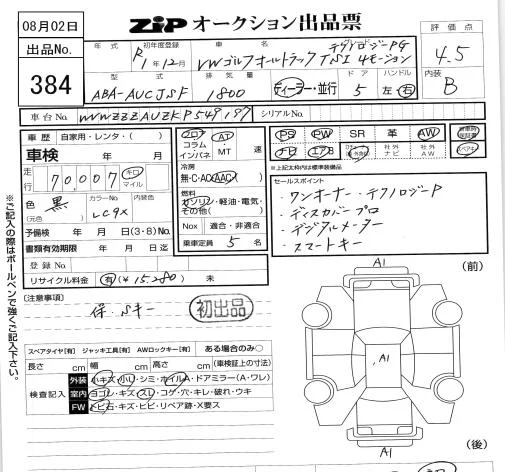 08月02日
ZIP オークション出品票
出品No.
384
年式
初年度登録
R1年12月
車名
VWゴルフオールトラック TSI 4モーション
テクノロジーPG
評価点
4.5
内装
B
型式
ABA-AUCJSF
排気量
1800
ディーラー・並行
ドア
5
ハンドル
左 右
車台No.
WVWZZZAUZKP549197
シリアルNo.
車歴 自家用・レンタ・( )
車検 年 月
走行 70,007 キロ マイル
色 黒 (元色)
カラーNo. LC9X
内装色
予備検 年 月 日(3・8)No.
書類有効期限 年 月 日迄
登録No.
リサイクル料金 有(¥15,280) 未
フロア コラム インパネ
AT MT 速
冷房
無・C・AC・AAC
燃料
ガソリン・軽油・電気・その他( )
Nox 適合・非適合
乗車定員 5 名
PS PW SR 革 AW
ナビ エアB
社外ナビ
社外AW
※上記太枠内は標準装備品
セールスポイント
・ワンオーナー・テクノロジーP
・ディスカバープロ
・デジタルメーター
・スマートキー
(注意事項)
保・Sキー
初出品
スペアタイヤ[有] ジャッキ工具[有] AWロックキー[有] ある場合のみ○
長さ cm 幅 cm 高さ cm (車検証上の寸法)
検査記入
外装 小キズ・小U・シミ・ホイルA・ドアミラー(A・ワレ)
室内 ヨゴレ・キズ・スレ・コゲ・穴・キレ・破れ・ウキ
FW トビ石・キズ・ヒビ・リペア跡・X要ス
A1
(前)
A1
A1
(後)
※ご記入の際はボールペンで強くご記入下さい。